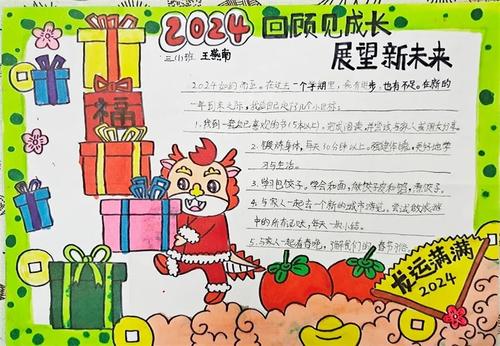 2024 回顾见成长
展望新未来
三(1)班 王
福
2024如约而至。在过去一个学期里,我有进步,也有不足。在新的
一年到来之际,我给自己定了几个小目标:
1.找到一套自己喜欢的书(5本以上),完成阅读,并尝试与家人或朋友分享。
2.锻炼身体,每天30分钟以上。强健体魄,更好地学
习与生活。
3.学包饺子。学会和面,做饺子皮和馅,煮饺子。
4.与家人一起去一个新的城市游玩。尝试做旅游
中的所有记账,每天一次小结。
5.与家人一起看春晚,了解我们的春节习俗。
发运满满
2024